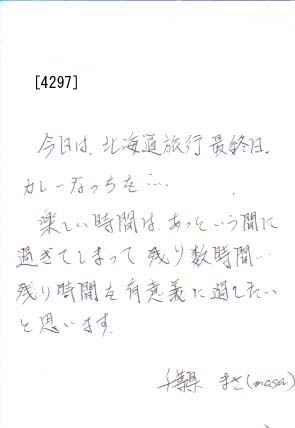 [4297]
今日は、北海道旅行 最終日。
カレーなっちを…
楽しい時間は、あっという間に
過ぎてしまって 残り数時間…
残り時間を有意義に過したい
と思います。
千葉県 まさ(masa)